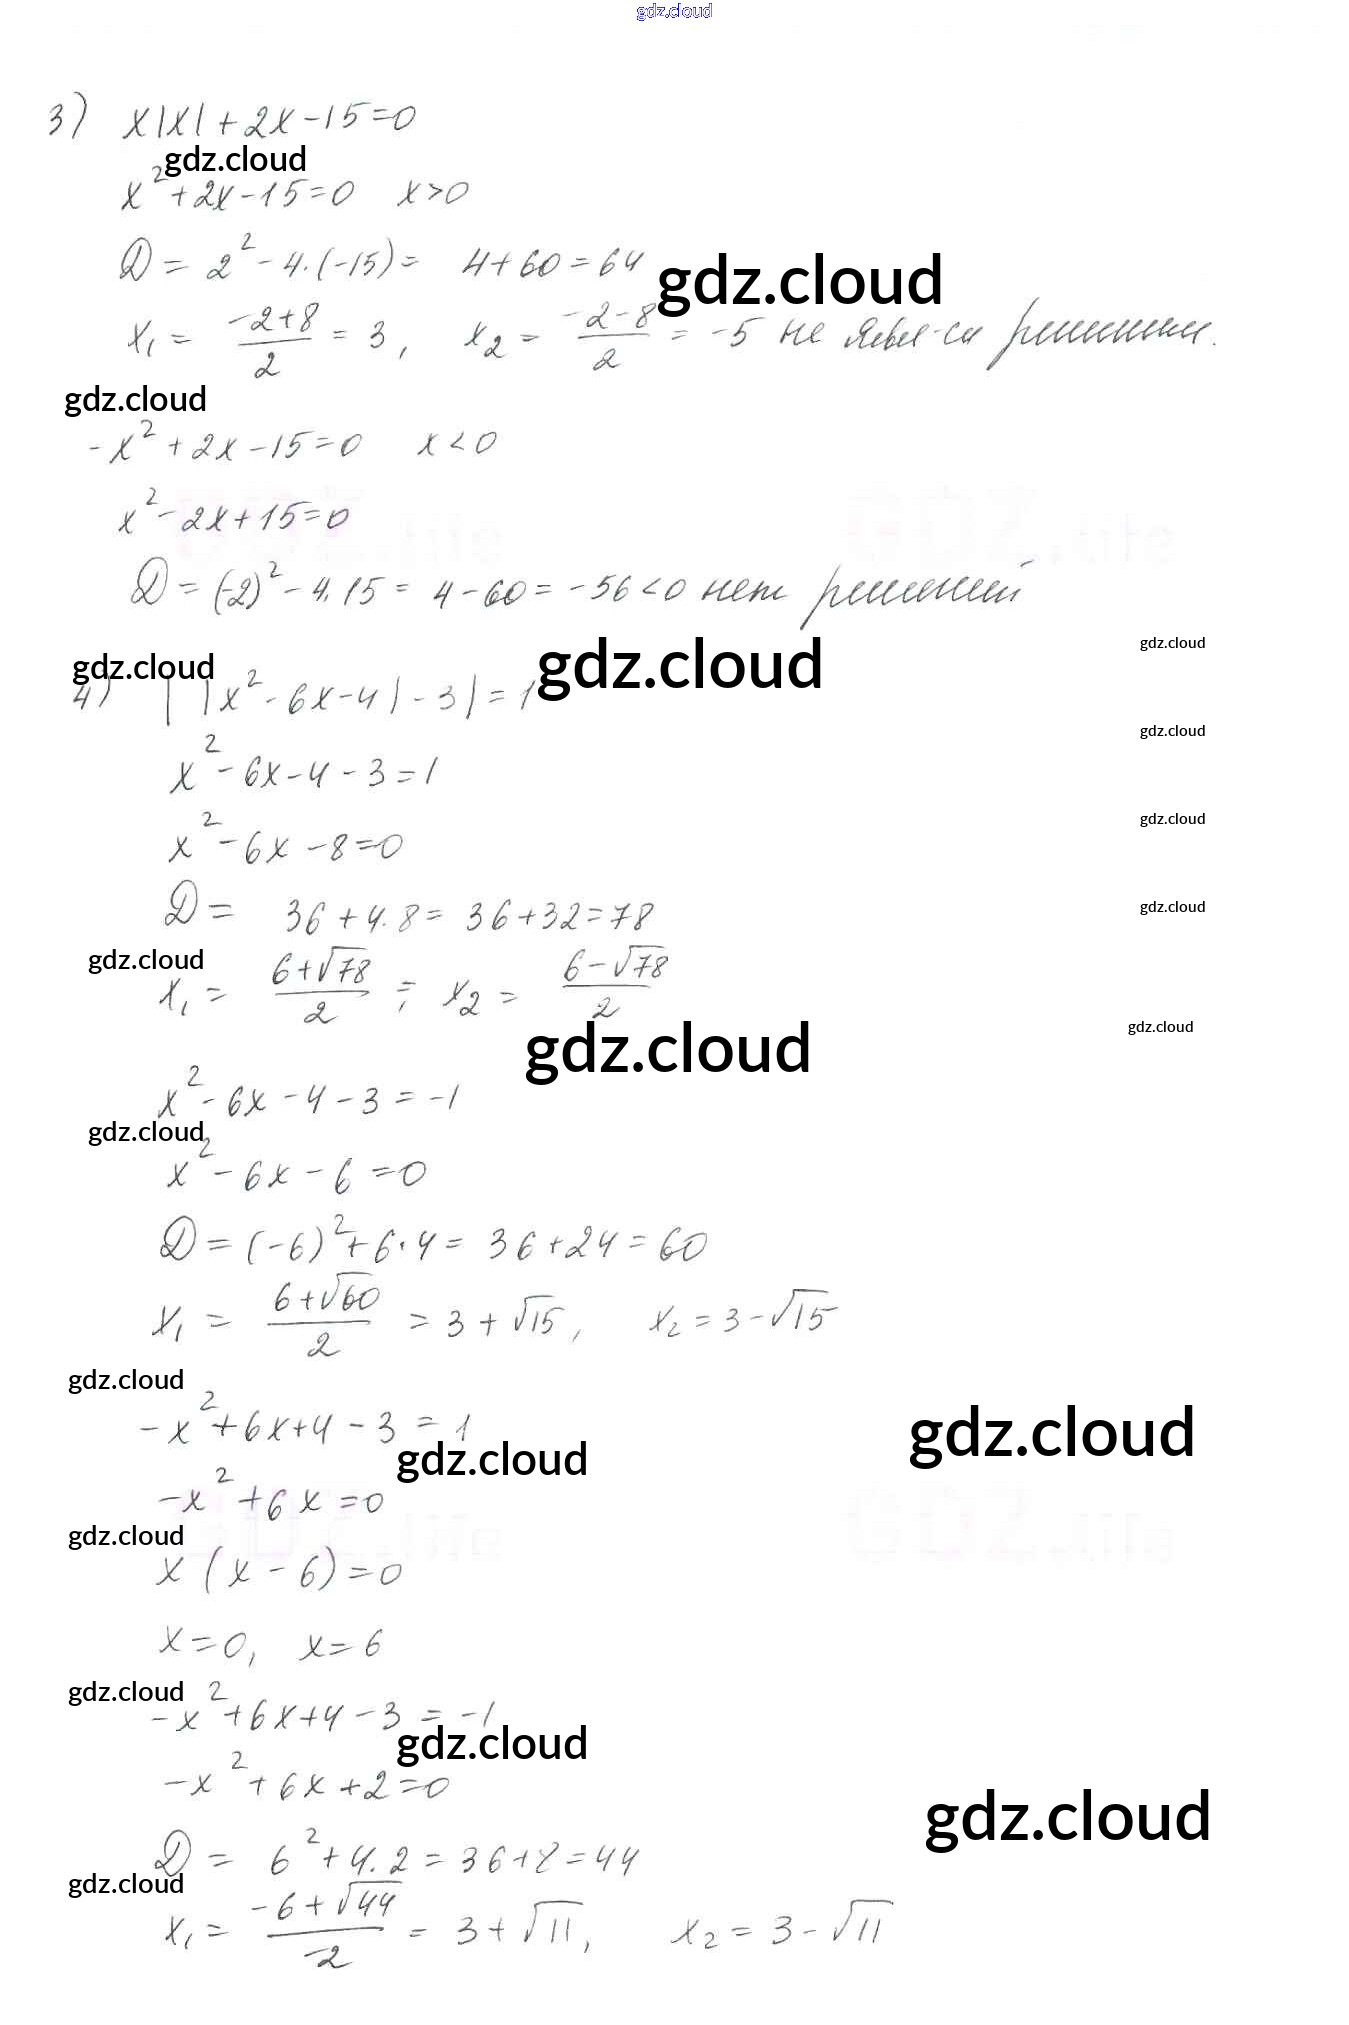 gdz.cloud
3) x|x| + 2x - 15 = 0
gdz.cloud
x² + 2x - 15 = 0 x > 0
D = 2² - 4·(-15) = 4 + 60 = 64
gdz.cloud
x₁ = (-2+8)/2 = 3, x₂ = (-2-8)/2 = -5 не явл-ся решением.
gdz.cloud
-x² + 2x - 15 = 0 x < 0
x² - 2x + 15 = 0
D = (-2)² - 4·15 = 4 - 60 = -56 < 0 нет решений
gdz.cloud
gdz.cloud
gdz.cloud
4) ||x² - 6x - 4| - 3| = 1
gdz.cloud
x² - 6x - 4 - 3 = 1
gdz.cloud
x² - 6x - 8 = 0
gdz.cloud
D = 36 + 4·8 = 36 + 32 = 78
gdz.cloud
x₁ = (6+√78)/2 ; x₂ = (6-√78)/2
gdz.cloud
gdz.cloud
x² - 6x - 4 - 3 = -1
gdz.cloud
x² - 6x - 6 = 0
D = (-6)² + 6·4 = 36 + 24 = 60
x₁ = (6+√60)/2 = 3 + √15, x₂ = 3 - √15
gdz.cloud
-x² + 6x + 4 - 3 = 1
gdz.cloud
gdz.cloud
-x² + 6x = 0
gdz.cloud
x(x - 6) = 0
x = 0, x = 6
gdz.cloud
-x² + 6x + 4 - 3 = -1
gdz.cloud
-x² + 6x + 2 = 0
gdz.cloud
D = 6² + 4·2 = 36 + 8 = 44
gdz.cloud
x₁ = (-6+√44)/-2 = 3 + √11, x₂ = 3 - √11